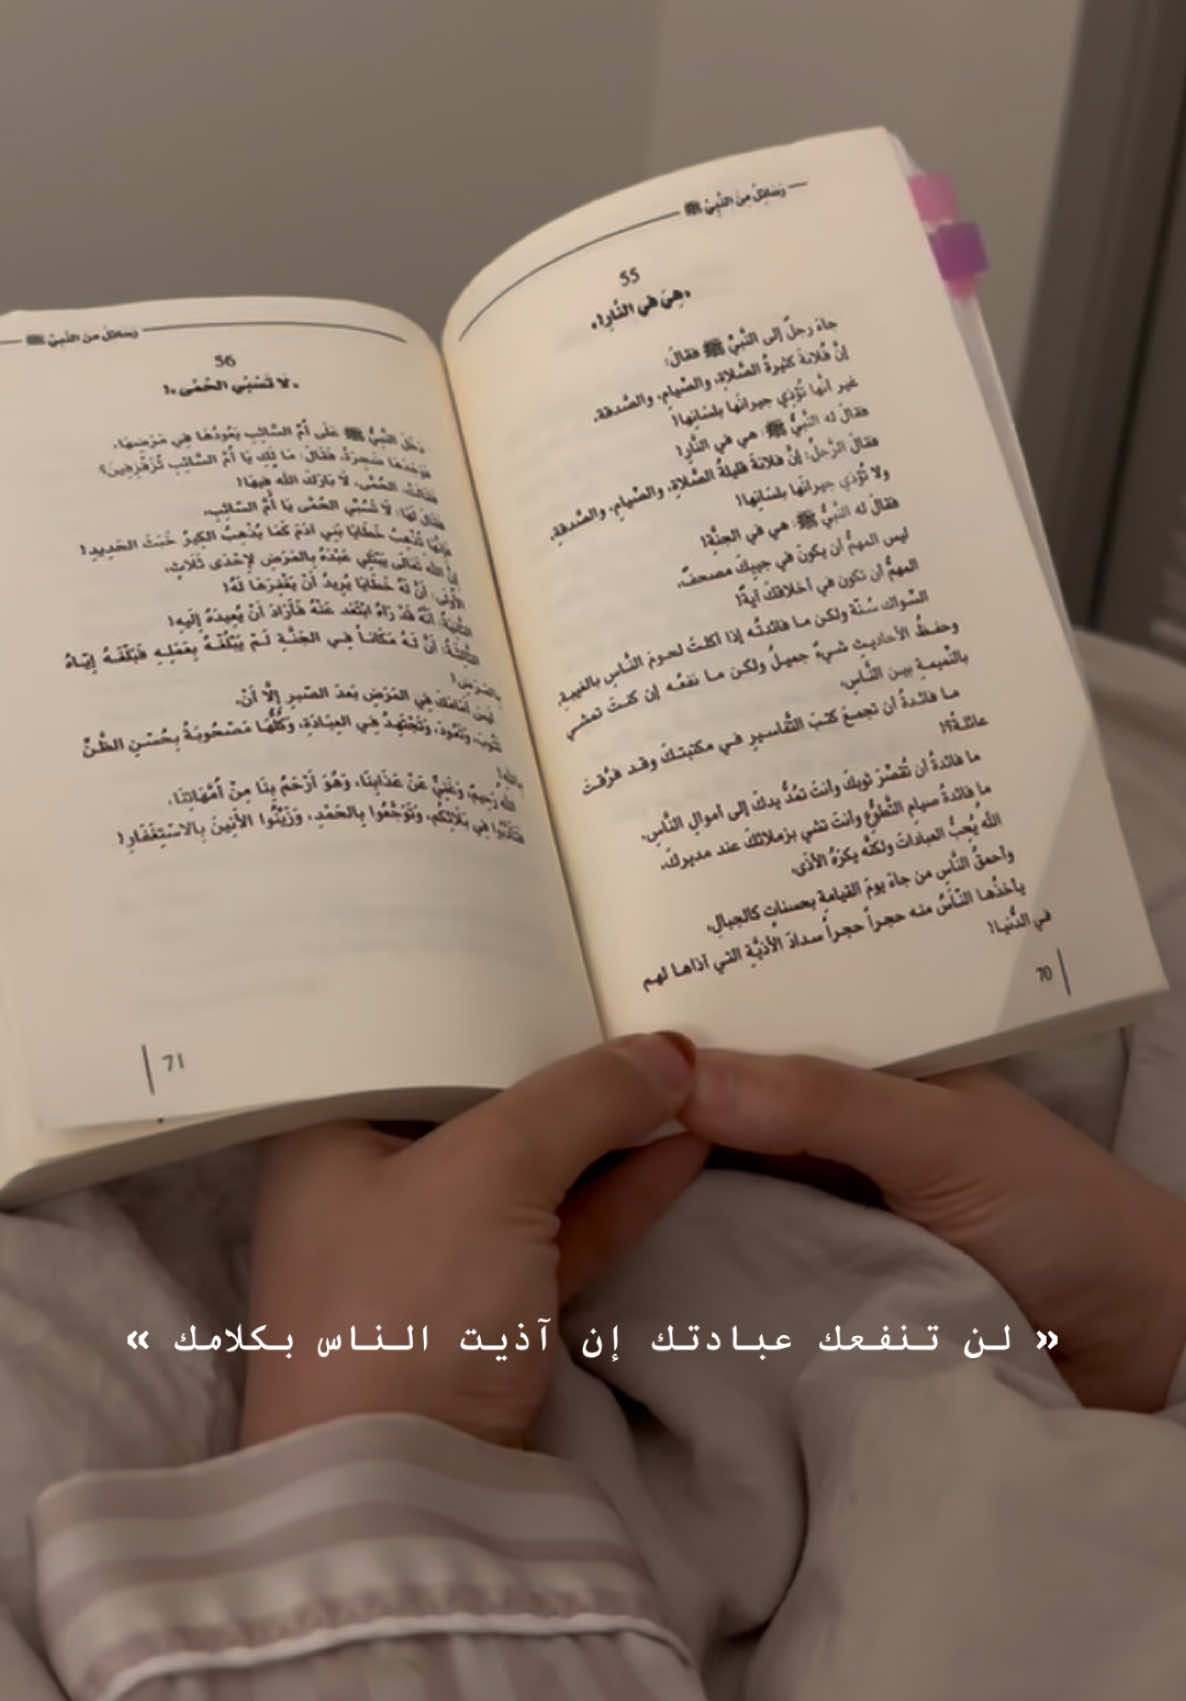 رَسَائِلُ مِنَ النَّبِيِّ ﷺ
55
«هِيَ فِي النَّارِ!»
جاءَ رجلٌ إلى النَّبيِّ ﷺ فقالَ:
إنَّ فُلانةَ كثيرةُ الصَّلاةِ، والصِّيامِ، والصَّدقةِ،
غير أنَّها تُؤذي جيرانَها بلسَانِها!
فقالَ له النَّبيُّ ﷺ: هي في النَّارِ!
فقالَ الرَّجلُ: إنَّ فلانةَ قليلةُ الصَّلاةِ، والصِّيامِ، والصَّدقةِ،
ولا تُؤذي جيرانَها بلسَانِها!
فقالَ له النَّبيُّ ﷺ: هي في الجنَّةِ!
ليس المهمُّ أن يكونَ في جيبِكَ مصحفٌ،
المهمُّ أن تكون في أخلاقكَ آيةٌ!
السِّواك سُنّة ولكن ما فائدتُه إذا أكلتَ لحومَ النَّاسِ بالغيبةِ،
وحفظُ الأحاديثِ شيءٌ جميلٌ ولكن ما نفعُه إن كنتَ تمشي
بالنَّميمةِ بين النَّاسِ،
ما فائدةُ أن تجمعَ كتبَ التَّفاسيرِ في مكتبتكَ وقد فرَّقتَ
عائلةً؟!
ما فائدةُ أن تُقصِّرَ ثوبكَ وأنتَ تمُدُّ يدكَ إلى أموالِ النَّاسِ،
ما فائدةُ صيامِ التَّطوُّعِ وأنتَ تشي بزملائكَ عند مديركَ،
اللهُ يُحِبُّ العباداتِ ولكنَّه يكرَهُ الأذى،
وأحمقُ النَّاسِ من جاءَ يومَ القيامةِ بحسناتٍ كالجبالِ،
يأخذُها النَّاسُ منه حجراً حجراً سدادَ الأذيَّةِ التي آذاها لهم
في الدُّنيا!
70
رَسَائِلُ مِنَ النَّبِيِّ ﷺ
56
«لَا تَسُبِّي الحُمَّى»!
دَخَلَ النَّبِيُّ ﷺ عَلَى أُمِّ السَّائِبِ يَعُودُهَا فِي مَرَضِهَا،
فَوَجَدَهَا ضَجِرَةً، فَقَالَ: مَا لَكِ يَا أُمَّ السَّائِبِ تُزَفْزِفِينَ؟
فَقَالَتْ: الحُمَّى، لَا بَارَكَ اللهُ فِيهَا!
فَقَالَ لَهَا: لَا تَسُبِّي الحُمَّى يَا أُمَّ السَّائِبِ،
فَإِنَّهَا تُذْهِبُ خَطَايَا بَنِي آدَمَ كَمَا يُذْهِبُ الكِيرُ خَبَثَ الحَدِيدِ!
إِنَّ اللهَ تَعَالَى يَبْتَلِي عَبْدَهُ بِالمَرَضِ لِإِحْدَى ثَلَاثٍ:
الأُولَى: أَنَّ لَهُ خَطَايَا يُرِيدُ أَنْ يَغْفِرَهَا لَهُ!
الثَّانِيَةُ: أَنَّهُ قَدْ رَآهُ ابْتَعَدَ عَنْهُ فَأَرَادَ أَنْ يُعِيدَهُ إِلَيهِ!
الثَّالِثَةُ: أَنَّ لَهُ مَكَانَاً فِي الجَنَّةِ لَمْ يَبْلُغْهُ بِعَمَلِهِ فَبَلَّغَهُ إِيَّاهُ
بِالمَرَضِ!
لَيْسَ أَمَامَكَ فِي المَرَضِ بَعدَ الصَّبرِ إِلَّا أَنْ:
تَتُوبَ، وَتَعُودَ، وَتَجْتَهِدَ فِي العِبَادَةِ، وَكُلُّهَا مَصْحُوبَةٌ بِحُسْنِ الظَّنِّ
بِاللهِ!
اللهُ رَحِيمٌ، وَغَنِيٌّ عَنْ عَذَابِنَا، وَهُوَ أَرْحَمُ بِنَا مِنْ أُمَّهَاتِنَا،
فَتَأَدَّبُوا فِي بَلَائِكُم، وَتَوَجَّعُوا بِالحَمْدِ، وَزَيِّنُوا الأَنِينَ بِالاسْتِغْفَارِ!
71
« لن تنفعك عبادتك إن آذيت الناس بكلامك »